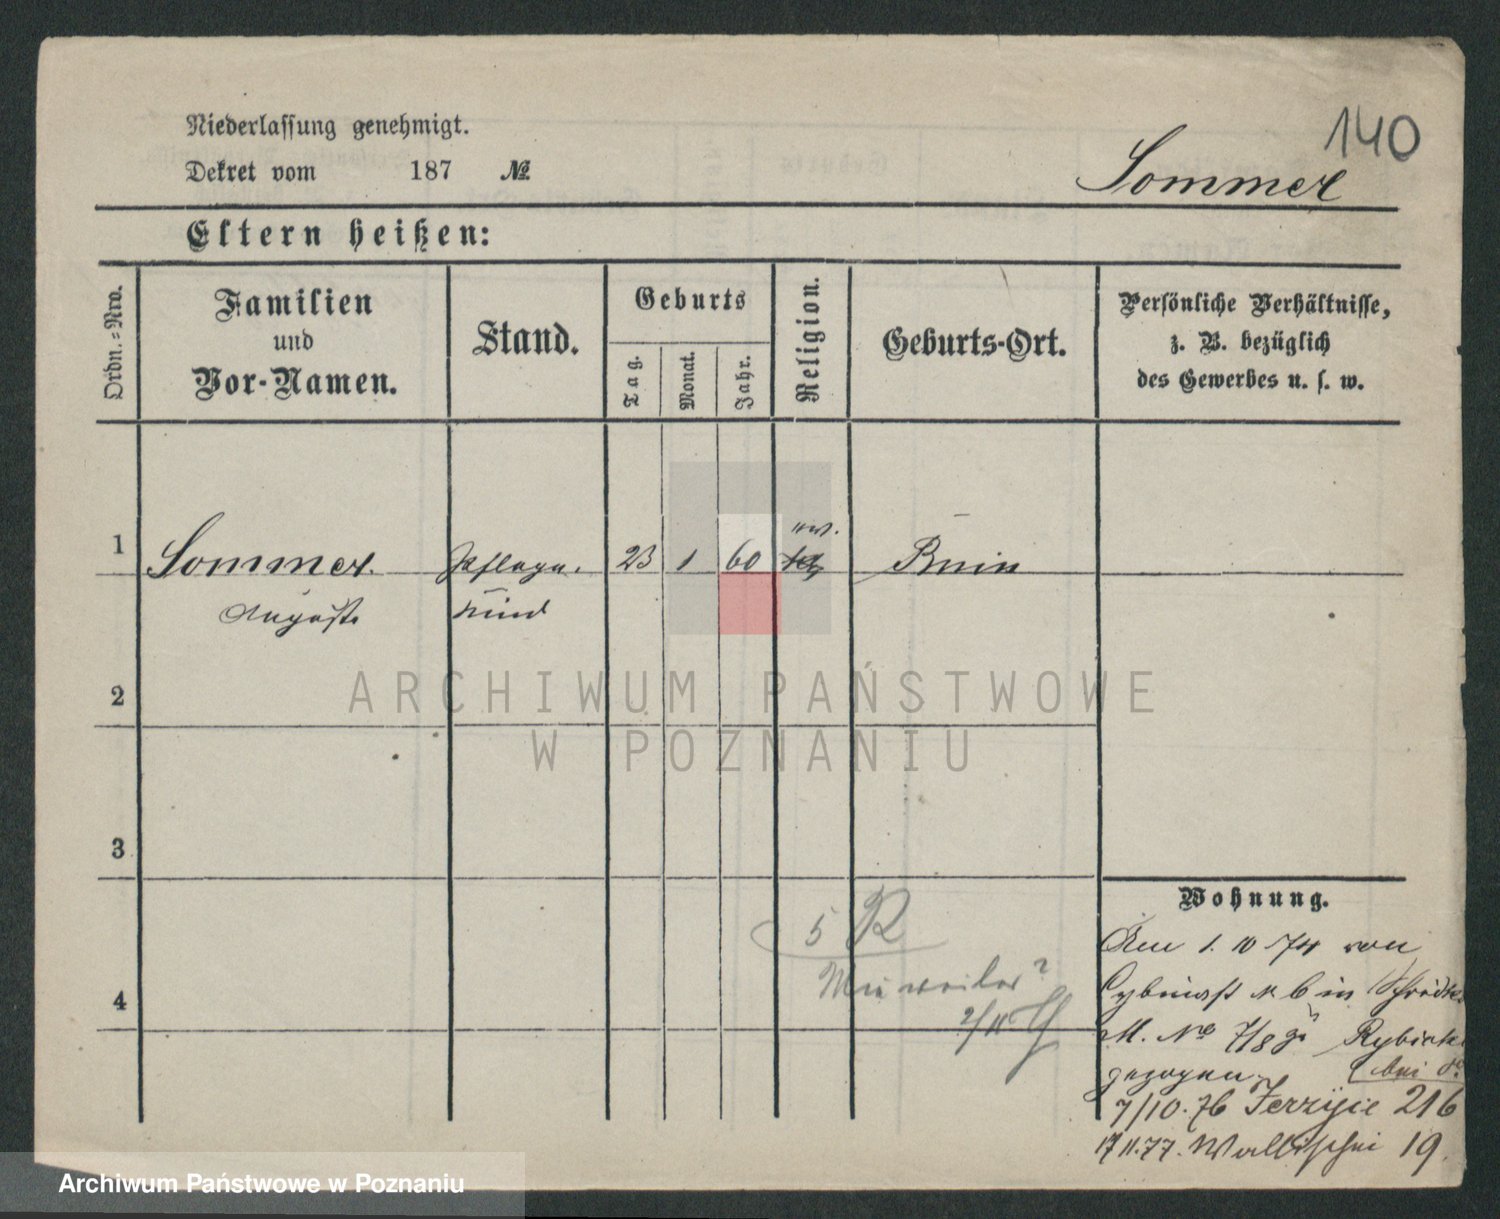 140
Niederlassung genehmigt.
Dekret vom 187 №
Sommer
Eltern heißen:
Ordn.-Nro.
Familien
und
Vor-Namen.
Stand.
Geburts
Tag.
Monat.
Jahr.
Religion.
Geburts-Ort.
Persönliche Verhältnisse,
z. B. bezüglich
des Gewerbes u. s. w.
1 Sommer. Pflege- 23 1 60 ev. Bnin
August Kind
2
3
4
5 R
2/11
Wohnung.
Am 1. 10 74 von
№ 6 in Schrodka
M. No 7/8 zu Rybicki
gezogen.
7/10. 76 Jerzyce 216
17 11. 77. Wallischei 19.
ARCHIWUM PAŃSTWOWE
W POZNANIU
Archiwum Państwowe w Poznaniu